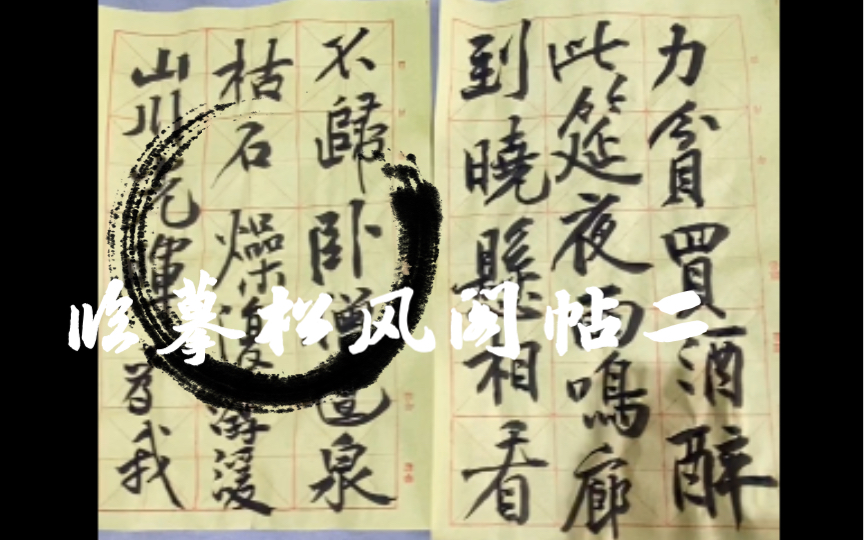 力貧買酒醉
此筵夜雨鳴廊
到曉懸相看
不歸卧僧泉
枯石燥復潺湲
山川光輝為我
临摹松风阁帖二